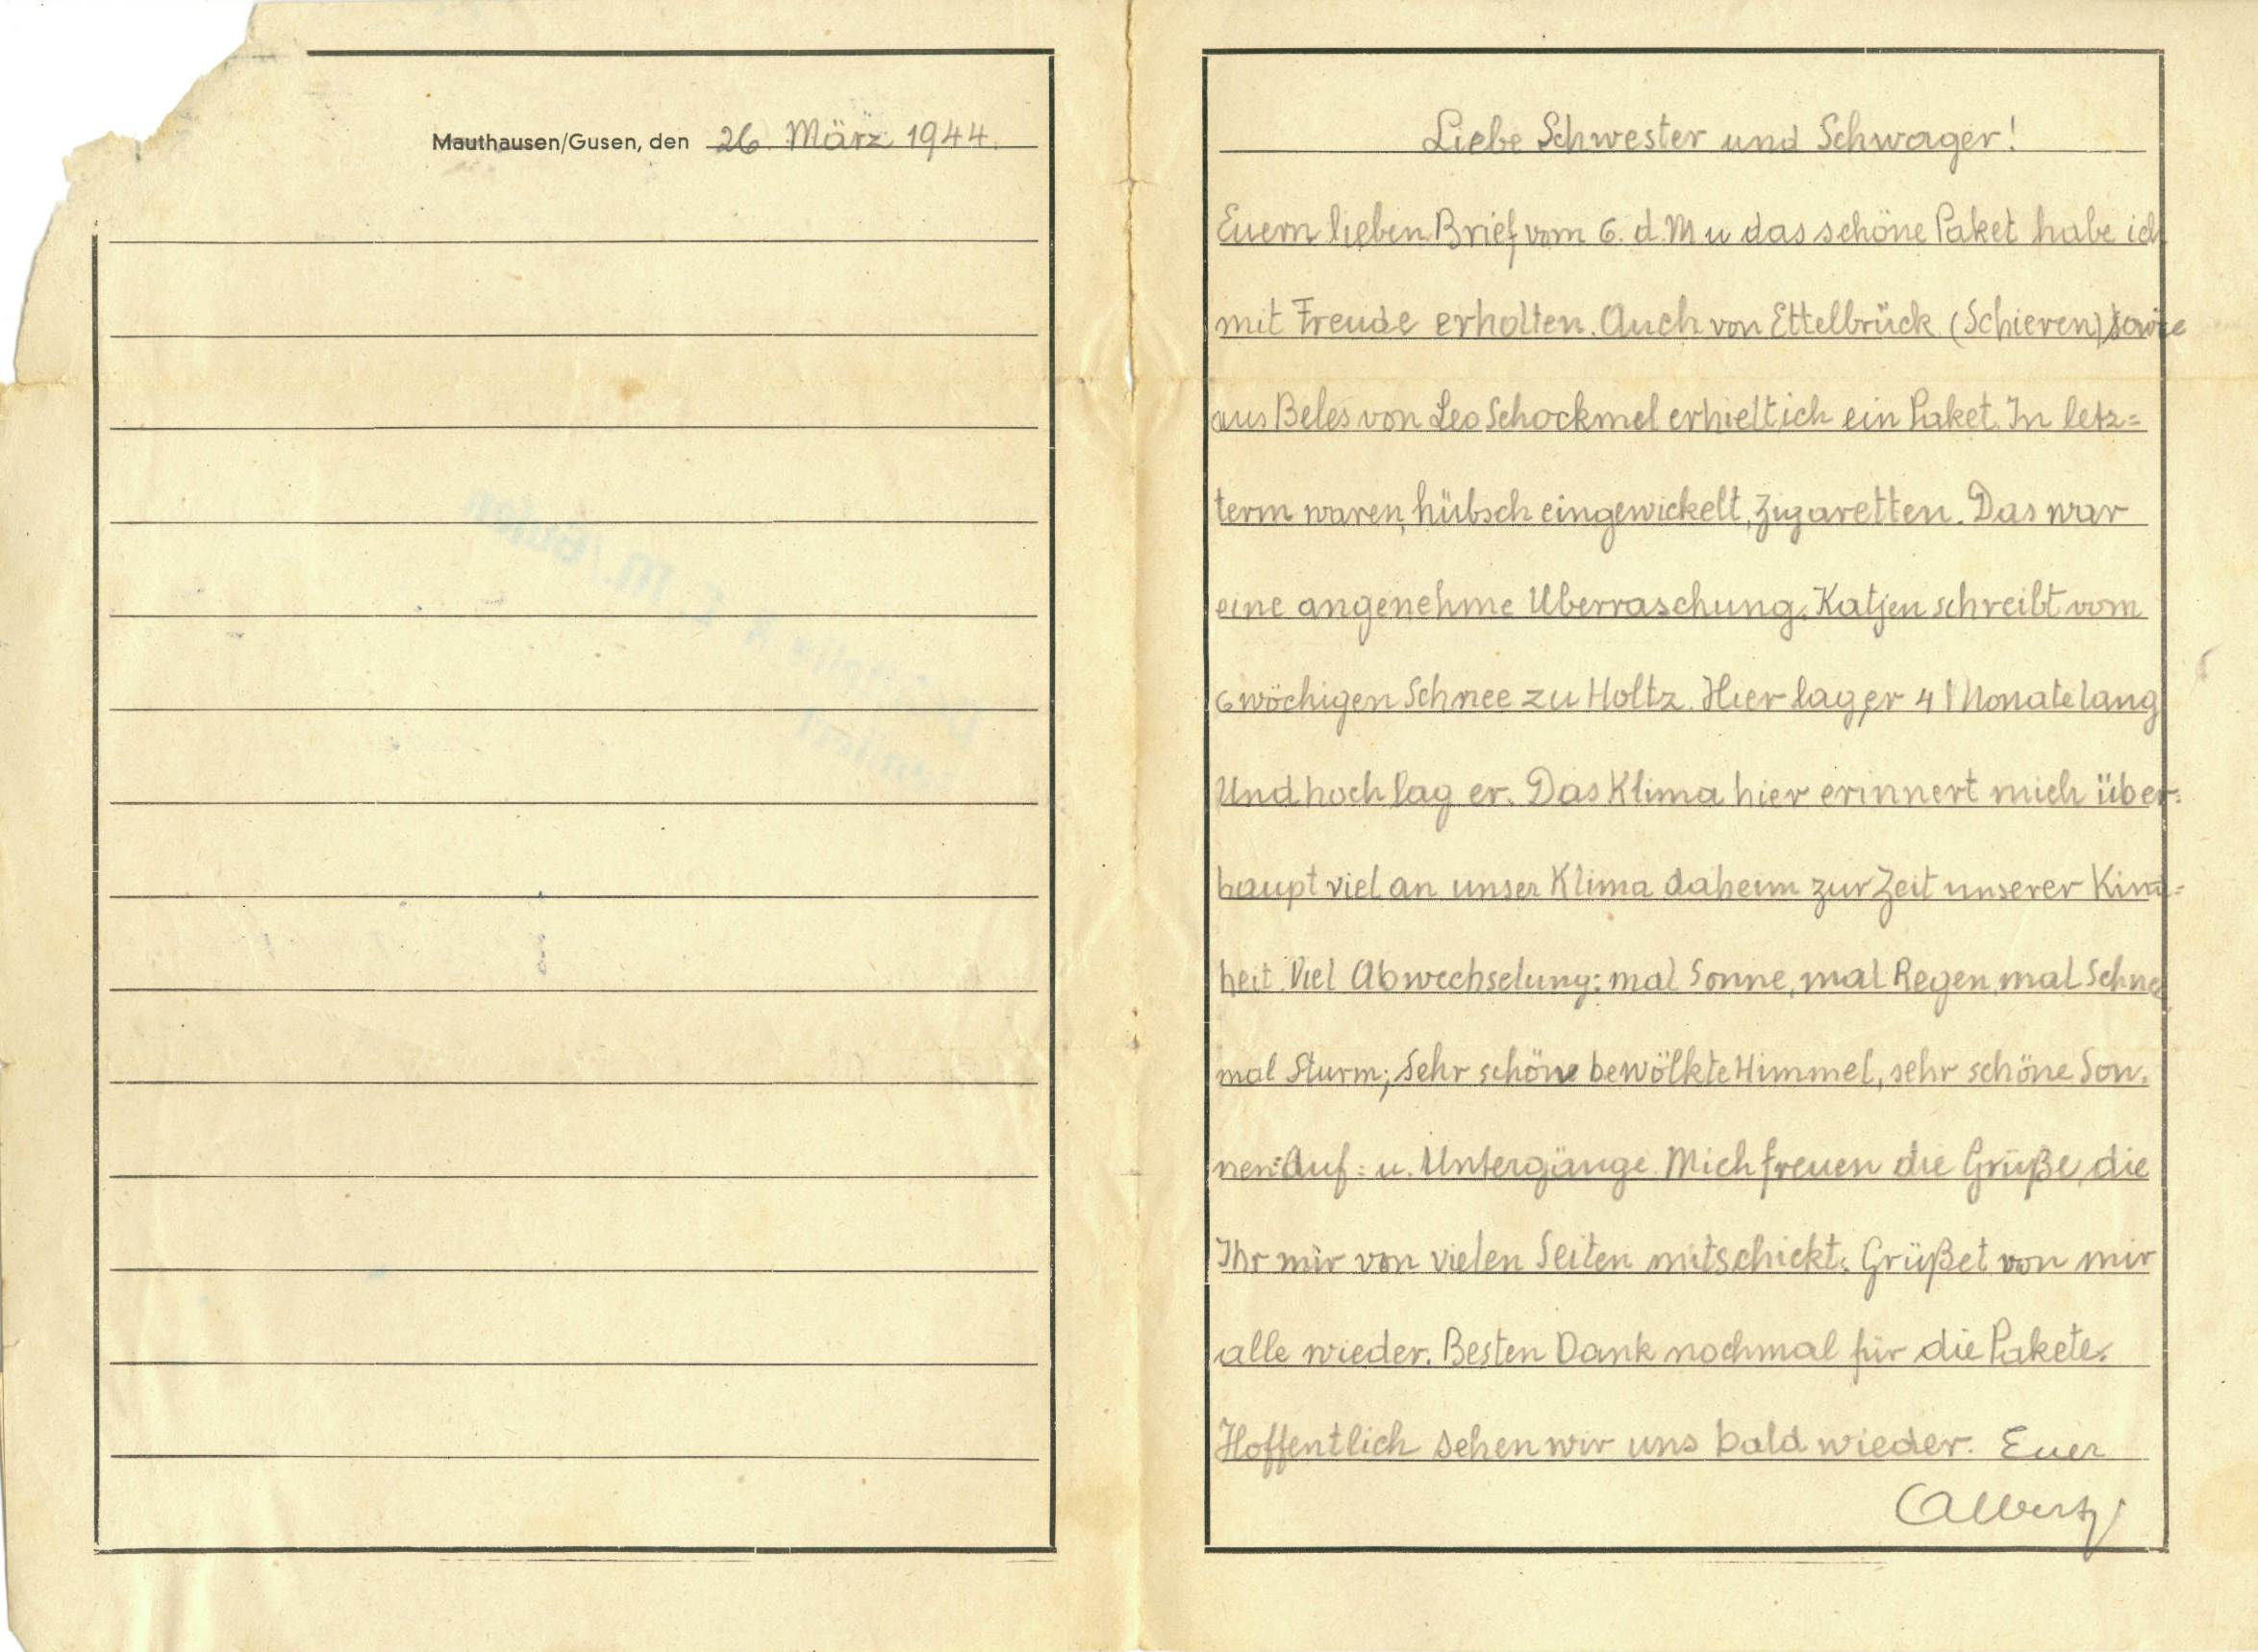 Mauthausen/Gusen, den 26. März 1944.
Liebe Schwester und Schwager!
Euern lieben Brief vom 6. d. M u das schöne Paket habe ich
mit Freude erhalten. Auch von Ettelbrück (Schieren) sowie
aus Beles von Leo Schockmel erhielt ich ein Paket. In letz=
term waren, hübsch eingewickelt, Zigaretten. Das war
eine angenehme Uberraschung. Katjen schreibt vom
6 wöchigen Schnee zu Holtz. Hier lag er 4 Monate lang
Und hoch lag er. Das Klima hier erinnert mich über=
haupt viel an unser Klima daheim zur Zeit unserer Kind=
heit. Viel Abwechselung: mal Sonne, mal Regen, mal Schnee
mal Sturm; sehr schöne bewölkte Himmel, sehr schöne Son.
nen=Auf= u. Untergänge. Mich freuen die Grüße, die
Ihr mir von vielen Seiten mitschickt. Grüßet von mir
alle wieder. Besten Dank nochmal für die Pakete.
Hoffentlich sehen wir uns bald wieder. Euer
Albert